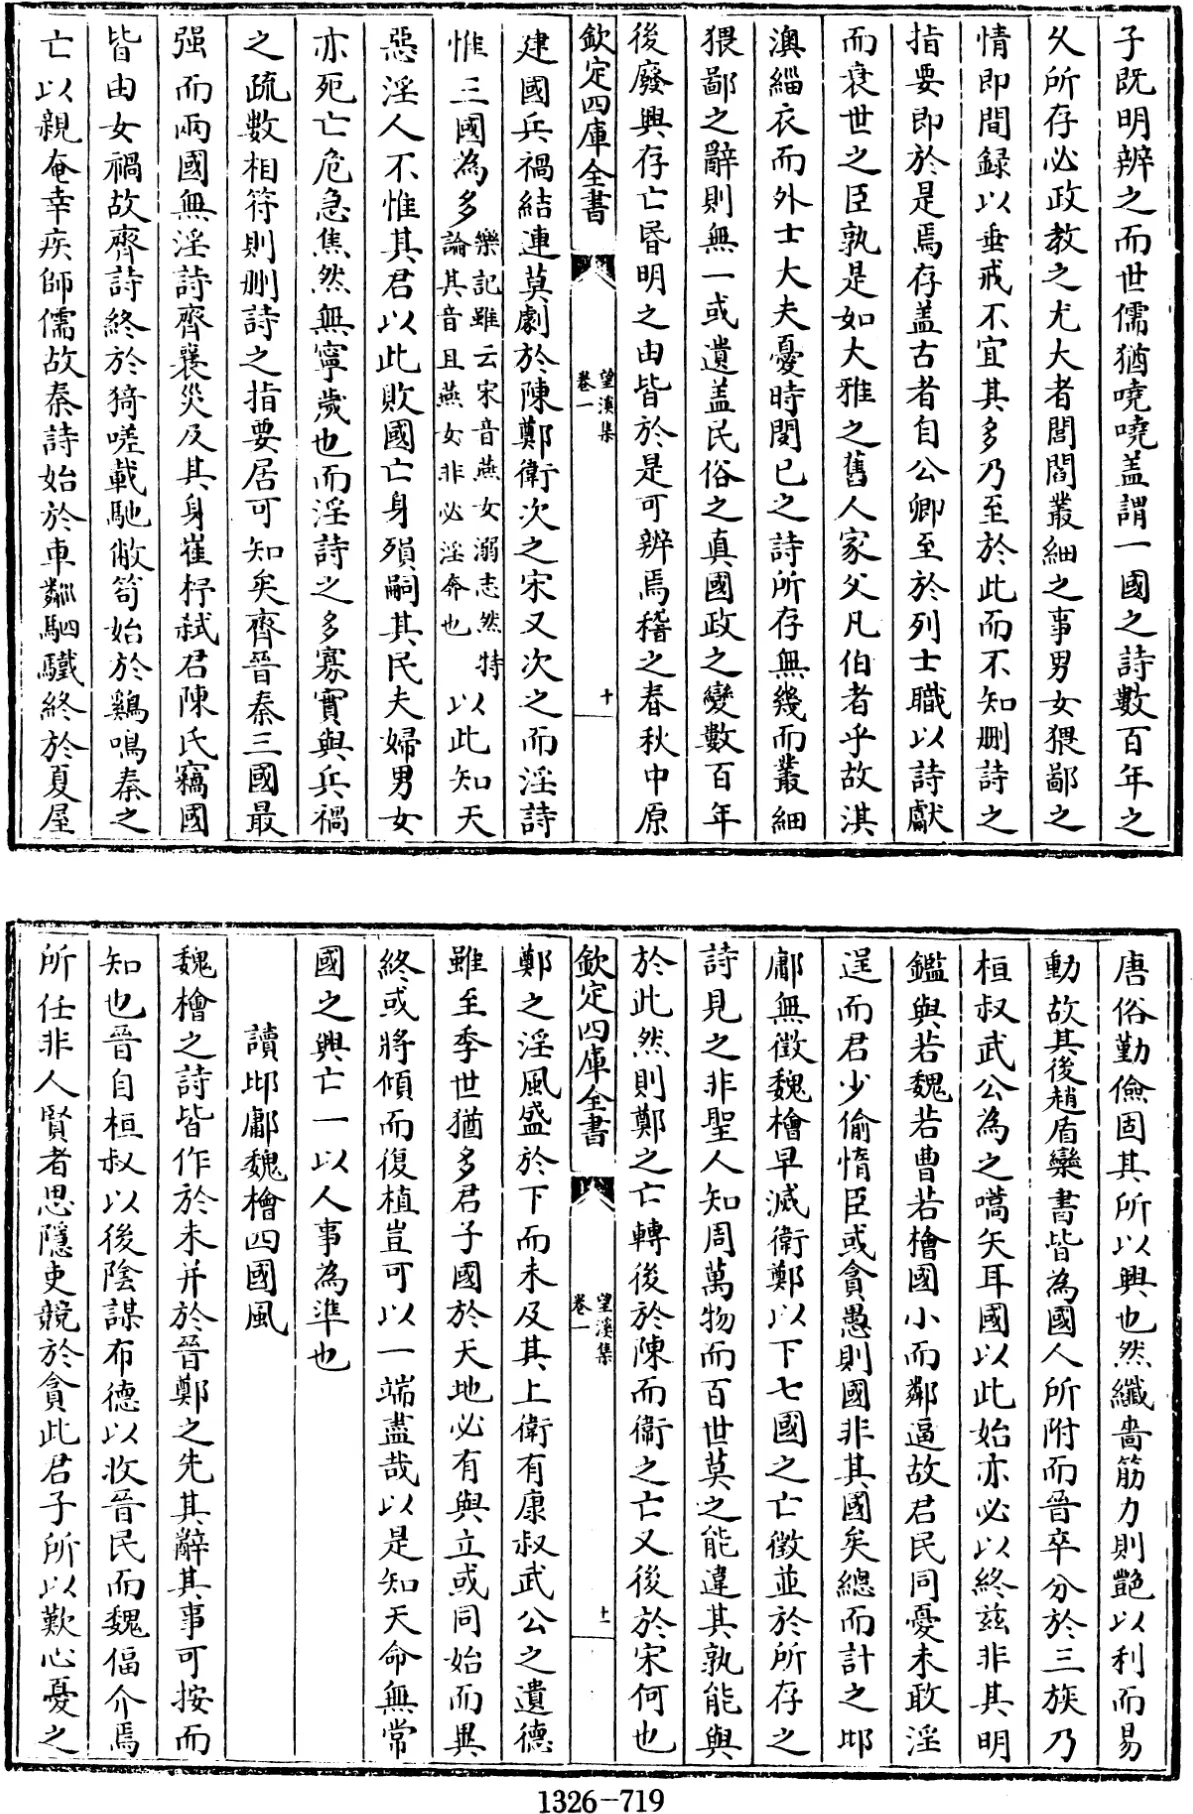 子既明辨之而世儒猶嘵嘵盖謂一國之詩數百年之
久所存必政教之尤大者閭閻叢細之事男女猥鄙之
情即間録以垂戒不宜其多乃至於此而不知刪詩之
指要即於是焉存盖古者自公卿至於列士職以詩獻
而衰世之臣孰是如大雅之舊人家父凡伯者乎故淇
澳緇衣而外士大夫憂時閔已之詩所存無幾而叢細
猥鄙之辭則無一或遺盖民俗之真國政之變數百年
後廢興存亡昏明之由皆於是可辨焉稽之春秋中原
欽定四庫全書
望溪集
卷一
十
建國兵禍結連莫劇於陳鄭衛次之宋又次之而淫詩
惟三國為多樂記雖云宋音燕女溺志然特論其音且燕女非必淫奔也以此知天
惡淫人不惟其君以此敗國亡身殞嗣其民夫婦男女
亦死亡危急焦然無寧歲也而淫詩之多寡實與兵禍
之疏數相符則刪詩之指要居可知矣齊晉秦三國最
强而兩國無淫詩齊襄災及其身崔杼弑君陳氏竊國
皆由女禍故齊詩終於猗嗟載馳敝笱始於鷄鳴秦之
亡以親奄幸疾師儒故秦詩始於車鄰駟驖終於夏屋
唐俗勤儉固其所以興也然纎嗇筋力則艷以利而易
動故其後趙盾欒書皆為國人所附而晉卒分於三族乃
桓叔武公為之嚆矢耳國以此始亦必以終兹非其明
鑑與若魏若曹若檜國小而鄰逼故君民同憂未敢淫
逞而君少偷惰臣或貪愚則國非其國矣總而計之邶
鄘無徴魏檜早滅衛鄭以下七國之亡徵並於所存之
詩見之非聖人知周萬物而百世莫之能違其孰能與
於此然則鄭之亡轉後於陳而衛之亡又後於宋何也
欽定四庫全書
望溪集
卷一
十一
鄭之淫風盛於下而未及其上衛有康叔武公之遺德
雖至季世猶多君子國於天地必有與立或同始而異
終或將傾而復植豈可以一端盡哉以是知天命無常
國之興亡一以人事為準也
讀邶鄘魏檜四國風
魏檜之詩皆作於未并於晉鄭之先其辭其事可按而
知也晉自桓叔以後陰謀布德以收晉民而魏偪介焉
所任非人賢者思隱吏競於貪此君子所以歎心憂之
1326-719